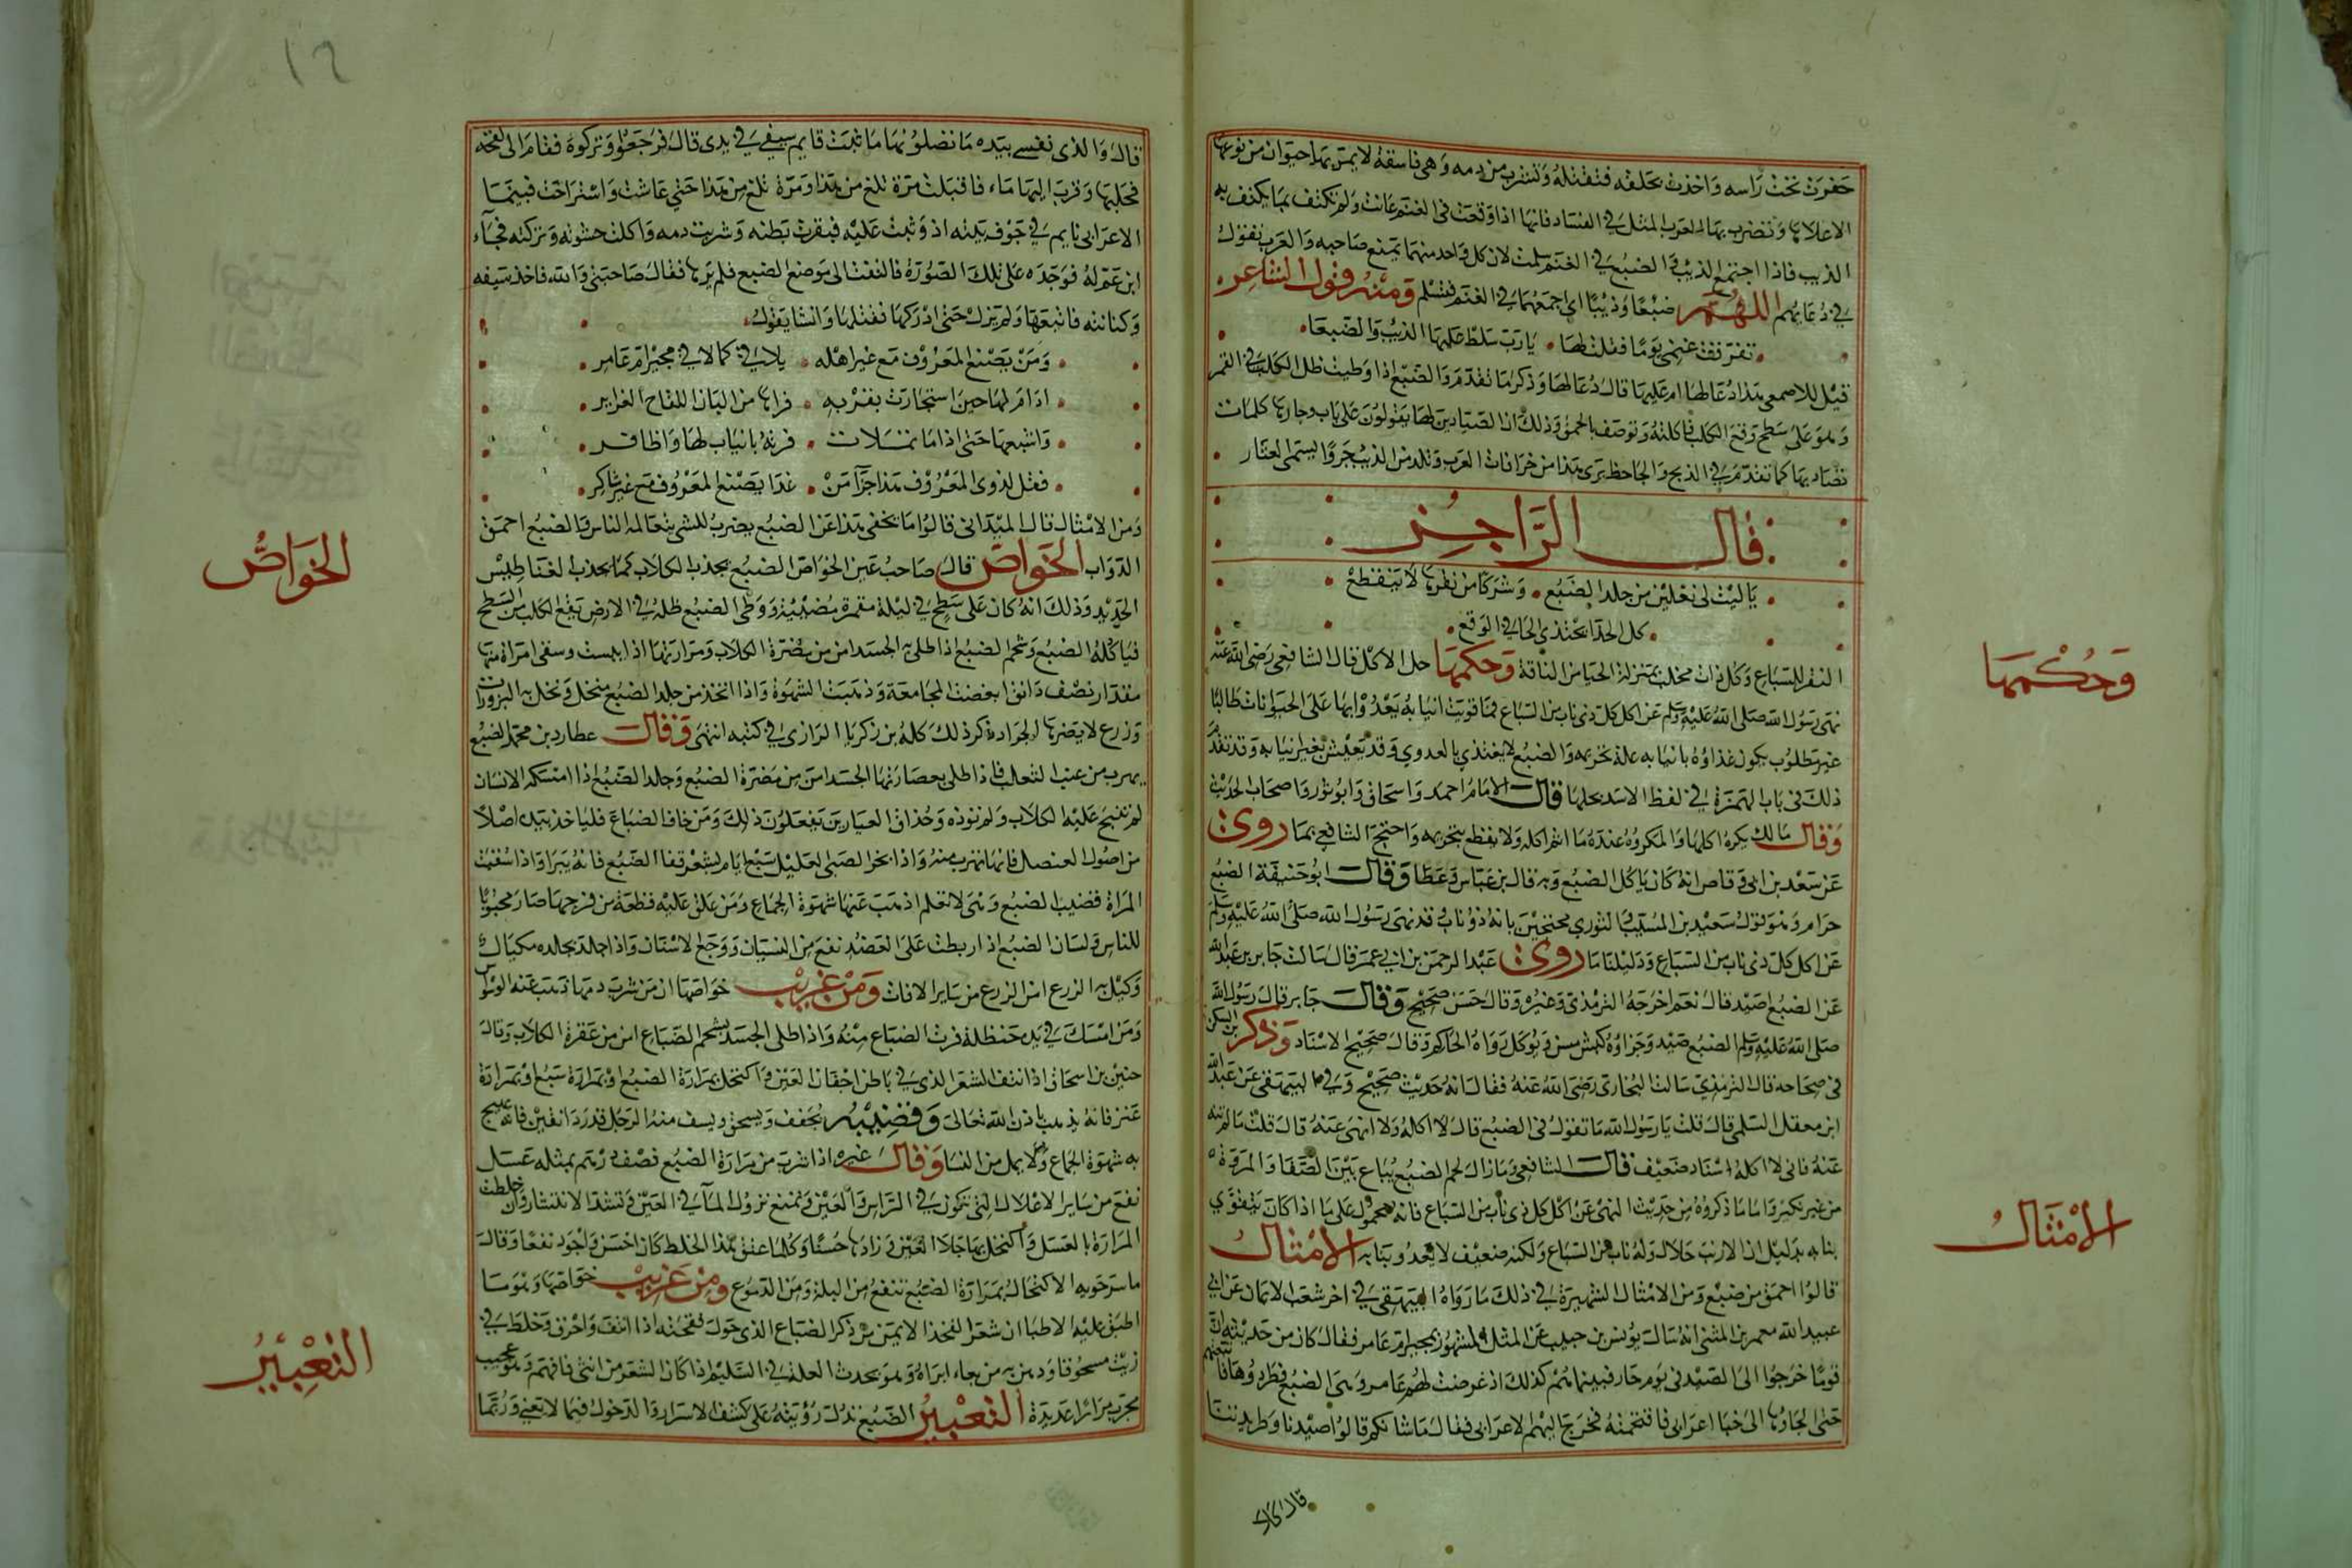 حفرت تحت راسه واخذت بحلقه فتقتله وتشرب من دمه وهي فاسقة لا يمر بها حيوان من نوعها
الا علاها وتضرب بها العرب المثل في الفساد فانها اذا وقعت في الغنم عاثت ولم تكتف بما يكتفي به
الذيب فاذا اجتمع الذيب والضبع في الغنم سلمت لان كل واحد منهما يمنع صاحبه والعرب تقول
في دعايهم اللهم ضبعا وذيبا اي اجمعهما في الغنم فتسلم ومنه قول الشاعر
تفرقت غنمي يوما فقلت لها يارب سلط عليها الذيب والضبعا
قيل للاصمعي هذا دعا لها ام عليها قال دعا لها وذكر ما تقدم والضبع اذا وطيت ظل الكلب في القمر
وهو على سطح وقع الكلب فاكلته وتوصف بالحمق وذلك ان الصيادين لها يقولون على باب وجارها كلمات
تصاد بها كما تقدم في الذيخ والجاحظ يرى هذا من خرافات العرب وتلد من الذيب جروا يسمى العتار
قال الراجز
ياليت لي نعلين من جلد الضبع وشركا من ثفرها لا ينقطع
كل الحذا يحتذي الحافي الوقع
الثفر للسباع وكل ذات مخلب بمنزلة الحيا من الناقة وحكمها حل الاكل قال الشافعي رضي الله عنه
نهى رسول الله صلى الله عليه وسلم عن اكل كل ذي ناب من السباع فما قويت انيابه يعدو بها على الحيوانات طالبا
غير مطلوب يكون غذاؤه بانيابه علة تحريمه والضبع لا يغتذي بالعدوي وقد يعيش بغير انيابه وقد تقدم
ذلك في باب الهمزة في لفظ الاسد بحلها قال الامام احمد واسحاق وابو ثور واصحاب الحديث
وقال مالك يكره اكلها والمكروه عنده ما اثم اكله ولا يقطع بتحريمه واحتج الشافعي بما روي
عن سعد بن ابي وقاص انه كان ياكل الضبع وبه قال بن عباس وعطا وقال ابو حنيفة الضبع
حرام وهو قول سعيد بن المسيب والثوري محتجين بانه ذو ناب وقد نهى رسول الله صلى الله عليه وسلم
عن اكل كل ذي ناب من السباع ودليلنا ما روي عبد الرحمن بن ابي عمر قال سالت جابر بن عبد الله
عن الضبع اصيد قال نعم اخرجه الترمذي وغيره وقال حسن صحيح وقال جابر قال رسول الله
صلى الله عليه وسلم الضبع صيد وجزاؤه كبش مسن ويوكل رواه الحاكم وقال صحيح الاسناد وذكر بن السكن
في صحاحه قال الترمذي سالت البخاري رضي الله عنه فقال انه حديث صحيح وفي البيهقي عن عبد الله
ابن معقل السلمي قال قلت يا رسول الله ما تقول في الضبع قال لا اكله ولا انهى عنه قال قلت ما لم تنه
عنه فاني لا اكله اسناد ضعيف قال الشافعي وما زال لحم الضبع يباع بين الصفا والمروة
من غير نكير واما ما ذكروه من حديث النهي عن اكل كل ذي ناب من السباع فانه محمول على ما اذا كان يتقوي
بنابه بدليل ان الارنب حلال وله ناب من السباع ولكنه ضعيف لا يعدو بنابه الامثال
قالوا احمق من ضبع ومن الامثال الشهيرة في ذلك ما رواه البيهقي في اخر شعب الايمان عن ابي
عبيد الله معمر بن المثنى انه سال يونس بن حبيب عن المثل المشهور كمجير ام عامر فقال كان من حديثه ان
قوما خرجوا الى الصيد في يوم حار فبينما هم كذلك اذ عرضت لهم ام عامر وهي الضبع فطردوها فاتبعتهم
حتى الجاوها الى خبا اعرابي فاقتحمته فخرج اليهم الاعرابي فقال ما شانكم قالوا صيدنا وطريدتنا
قال كلا
وحكمها
الامثال
١٢
قال والذي نفسي بيده ما تصلون اليها ما ثبت قايم سيفي في يدي قال فرجعوا وتركوه فقام الى لقحه
فحلبها وقرب اليها ماء فاقبلت مرة تلغ من هذا ومرة تلغ من هذا حتى عاشت واستراحت فبينما
الاعرابي نايم في جوف بيته اذ وثبت عليه فبقرت بطنه وشربت دمه واكلت حشوته وتركته فجاء
ابن عم له فوجده على تلك الصورة فالتفت الى موضع الضبع فلم يرها فقال صاحبتي والله فاخذ سيفه
وكنانته فاتبعها ولم يزل حتى ادركها فقتلها وانشا يقول
ومن يصنع المعروف مع غير اهله يلاقي كما لاقي مجير ام عامر
ادام لها حين استجارت بقربه قراها من البان اللقاح الغزاير
واشبعها حتى اذا ما تملات فرته بانياب لها واظافر
فقل لذوي المعروف هذا جزآ من غدا يصنع المعروف مع غير شاكر
ومن الامثال قال الميداني قالوا ما يخفى هذا عن الضبع يضرب للشي يتعالمه الناس والضبع احمق
الدواب الخواص قال صاحب عين الخواص الضبع يجذب الكلاب كما يجذب المغناطيس
الحديد وذلك انه كان على سطح في ليلة مقمرة مضيئة ووطي الضبع ظله في الارض يقع الكلب من السطح
فياكله الضبع وشحم الضبع اذا طلي به الجسد امن من مضرة الكلاب ومرارتها اذا يبست وسقي امراة منها
مقدار نصف دانق ابغضت المجامعة وذهبت الشهوة واذا اتخذ من جلد الضبع منخل ونخل به البزورات
وزرع لا يضرها الجراد ذكر ذلك كله بن زكريا الرازي في كتبه انتهى وقال عطارد بن محمد الضبع
يهرب من عنب الثعلب فاذا طلي بعصارتها الجسد امن من مضرة الضبع وجلد الضبع اذا امسكه الانسان
لم تنبح عليه الكلاب ولم توذه وحذاق العيارين يفعلون ذلك ومن خاف الضباع فلياخذ بيده اصلا
من اصول العنصل فانها تهرب منه واذا بخر الصبي العليل سبع ايام بشعر قفا الضبع فانه يبرا واذا سقيت
المراة قضيب الضبع وهي لا تعلم اذهب عنها شهوة الجماع ومن علق عليه قطعة من فرجها صار محبوبا
للناس ولسان الضبع اذا ربطت على العضد نفع من النسيان ووجع الاسنان واذا جلد بجلده مكيال
وكيل به الزرع امن الزرع من ساير الافات ومن غريب خواصها ان من شرب دمها ذهب عنه الوسواس
ومن امسك في يده حنظلة فرت الضباع منه واذا طلي الجسد بشحم الضباع امن من عقرة الكلاب وقال
حنين بن اسحاق اذا نتف الشعر الذي في باطن اجفان العين واكتحل بمرارة الضبع او بمرارة سبع او بمرارة
عنز فانه يذهب باذن الله تعالى وقضيبه يجفف ويسحق ويسف منه الرجل قدر دانقين فانه يهيج
به شهوة الجماع ولا يمل من النسا وقال غيره اذا شرب من مرارة الضبع نصف درهم بمثله عسل
نفع من ساير الاعلال التي تكون في الراس والعين ويمنع نزول الما في العين وتشد الانتشار وان خلطت
المرارة بالعسل واكتحل بها جلا العين وزادها حسنا وكلما عتق هذا الخلط كان احسن واجود نفعا وقال
ماسرجويه الاكتحال بمرارة الضبع تنفع من البلة ومن الدموع ومن غريب خواصها وهو ما
اطبق عليه الاطبا ان شعر الفخذ الايمن من ذكر الضباع الذي حول فقحته اذا انتف واحرق وخلط في
زيت مسحوقا ودهن به من به بغاء ابراه وهو يحدث العلة في السليم اذا كان الشعر من انثى فافهم وهو عجيب
مجرب مرارا عديدة التعبير الضبع تدل رؤيته على كشف الاسرار والدخول فيما لا يعني وربما
الخواص
التعبير